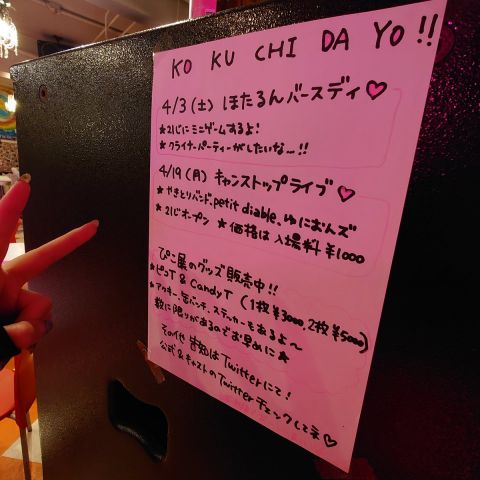 KO KU CHI DA YO!!
4/3(土) ほたるんバースディ♡
★21じにミニゲームするよ!
★クライナーパーティーがしたいな…!!
4/19(月) キャンストップライブ♡
★やきとりバンド、petit diable、ゆにおんズ
★21じオープン ★価格は入場料¥1000
ぴこ展のグッズ販売中!!
★ピコT & Candy T (1枚¥3000、2枚¥5000)
★アッキー、缶バッチ、ステッカーもあるよ〜
数に限りがあるのでお早めに★
その他 告知はTwitterにて!
公式&キャストのTwitterチェックしてネ♡